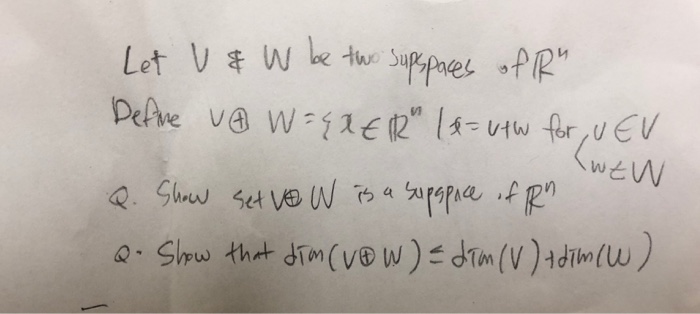 Let V & W be two supspaces of ℝⁿ
Define V⊕W = {x ∈ ℝⁿ | x = v+w for v ∈ V
w ∈ W
Q. Show set V⊕W is a supspace of ℝⁿ
Q. Show that dim(V⊕W) ≤ dim(V)+dim(W)